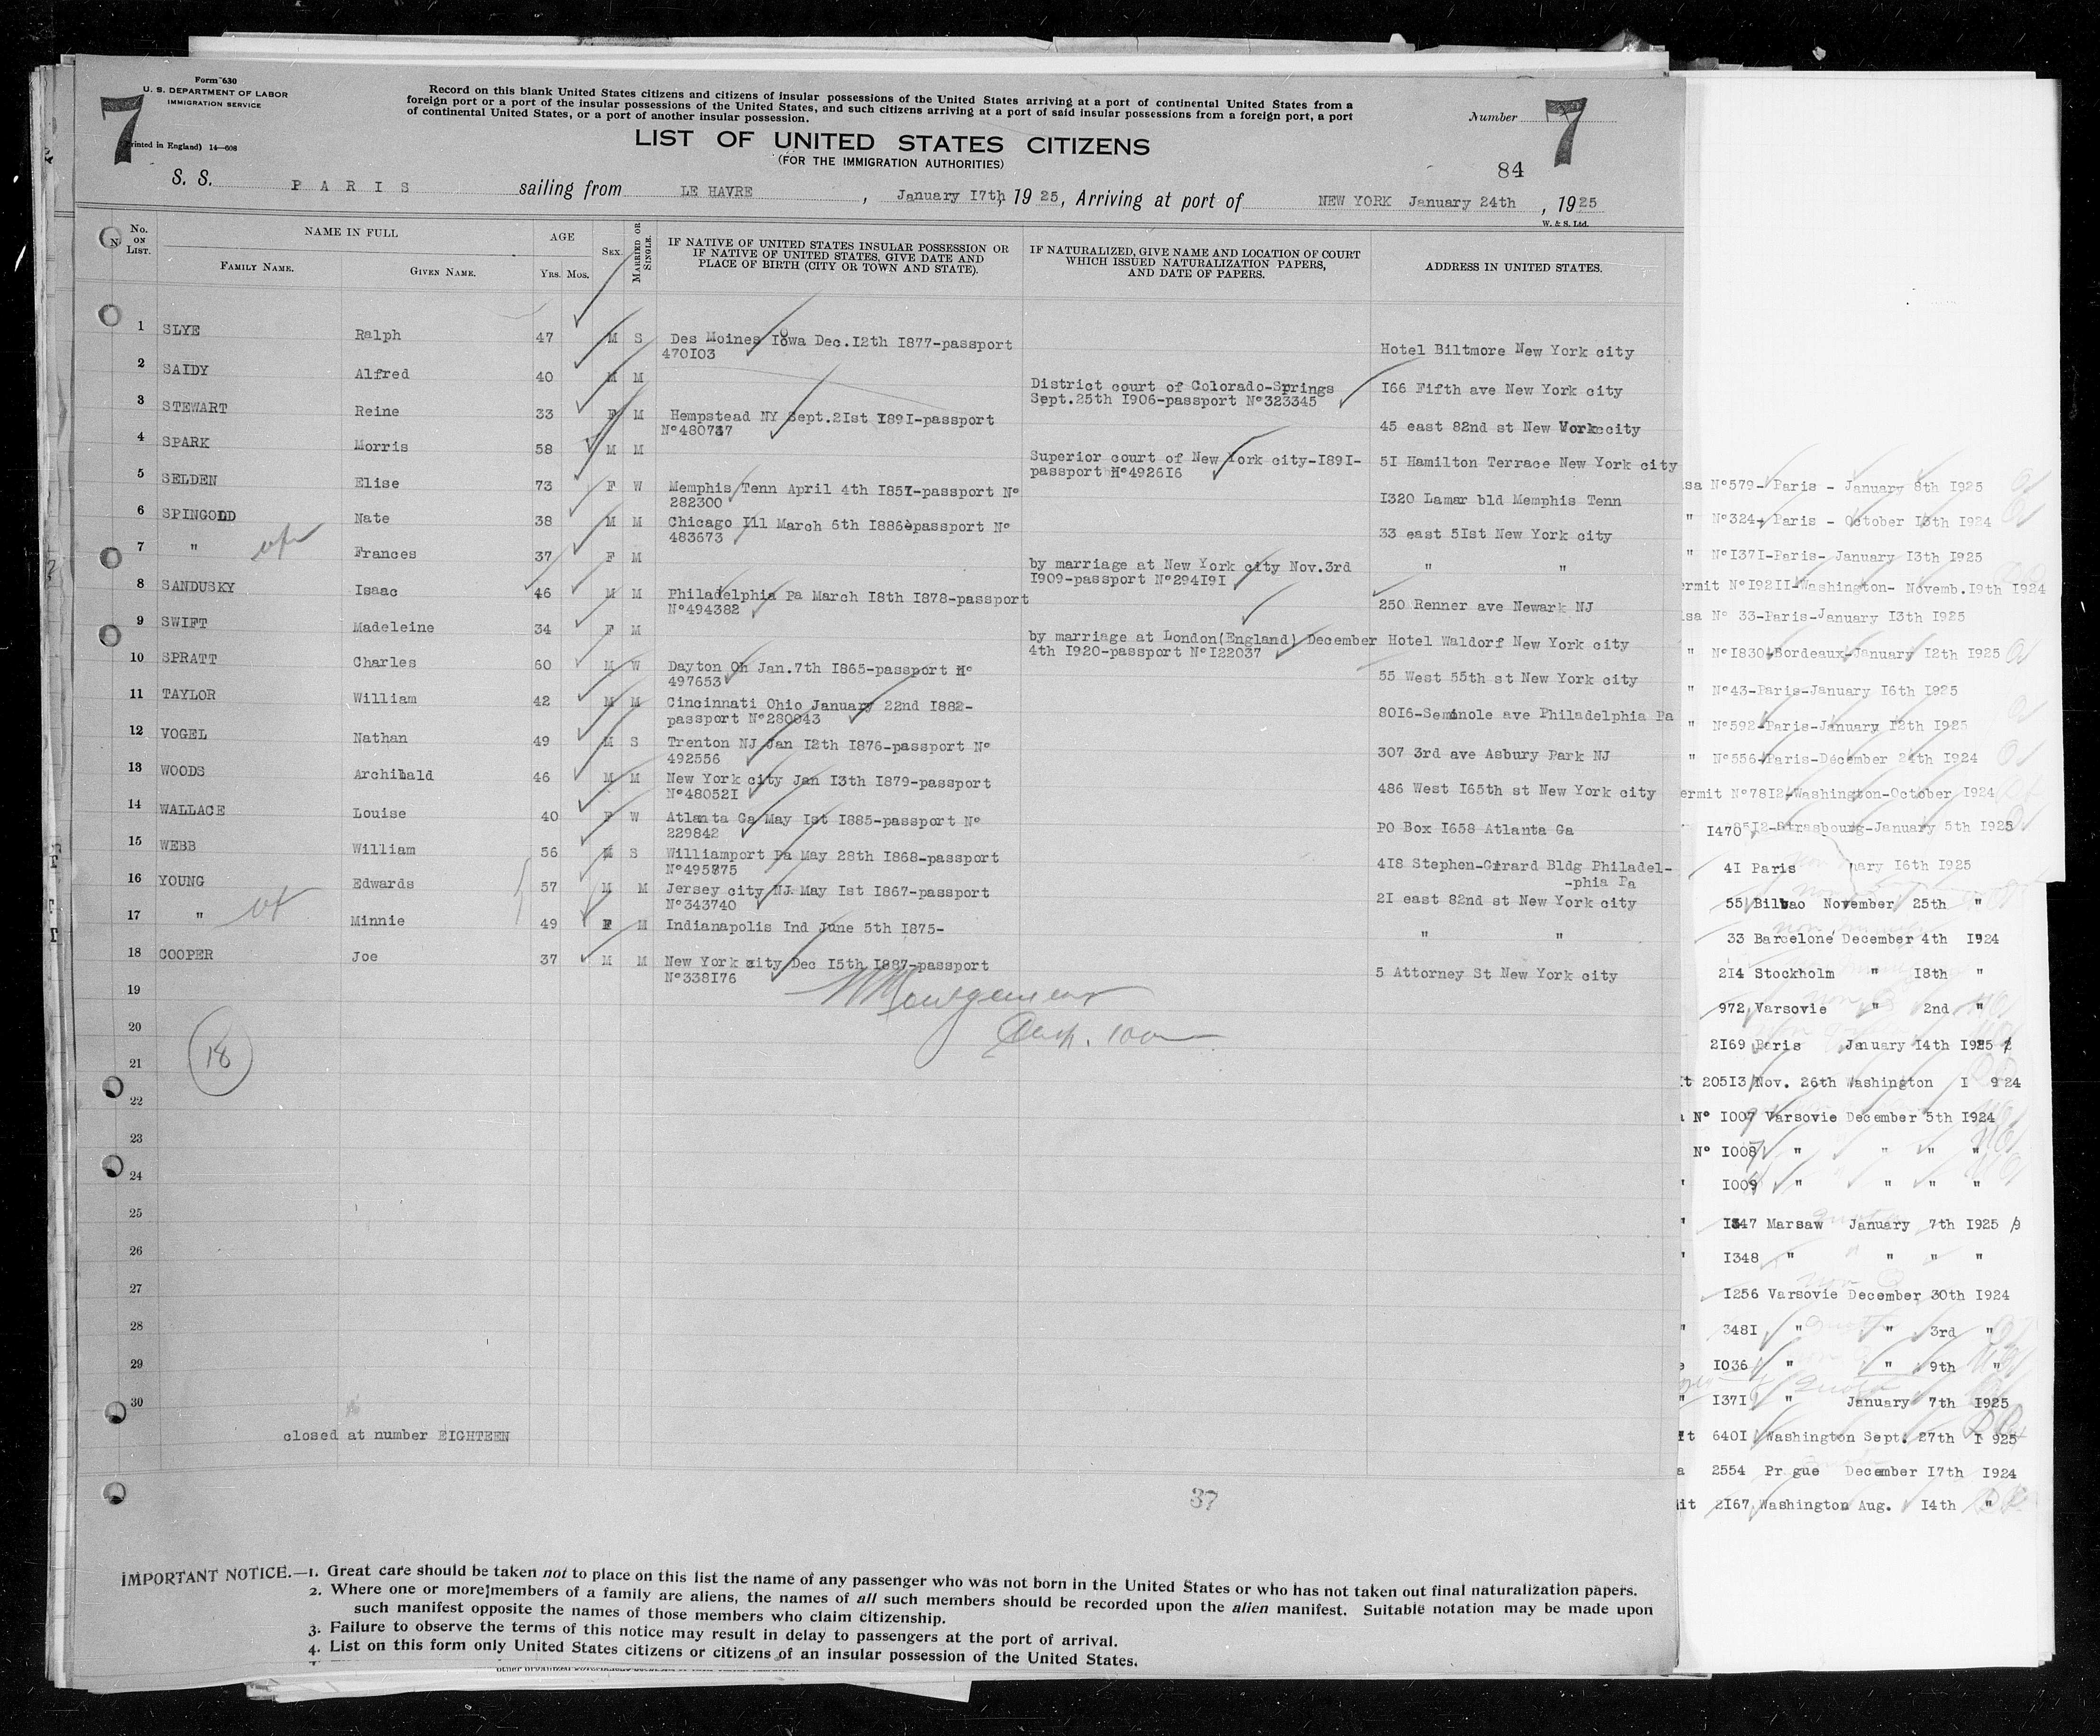 Form 630
U. S. DEPARTMENT OF LABOR
IMMIGRATION SERVICE
7
Printed in England) 14—608
Record on this blank United States citizens and citizens of insular possessions of the United States arriving at a port of continental United States from a
foreign port or a port of the insular possessions of the United States, and such citizens arriving at a port of said insular possessions from a foreign port, a port
of continental United States, or a port of another insular possession.
LIST OF UNITED STATES CITIZENS
(FOR THE IMMIGRATION AUTHORITIES)
Number 7
84
S. S. PARIS sailing from LE HAVRE, January I7th, 1925, Arriving at port of NEW YORK January 24th, 1925
W. & S. Ltd.
No. ON LIST.
NAME IN FULL
FAMILY NAME.
GIVEN NAME.
AGE
YRS. MOS.
SEX
MARRIED OR SINGLE.
IF NATIVE OF UNITED STATES INSULAR POSSESSION OR
IF NATIVE OF UNITED STATES, GIVE DATE AND
PLACE OF BIRTH (CITY OR TOWN AND STATE).
IF NATURALIZED, GIVE NAME AND LOCATION OF COURT
WHICH ISSUED NATURALIZATION PAPERS,
AND DATE OF PAPERS.
ADDRESS IN UNITED STATES.
1 SLYE Ralph 47 M S Des Moines Iowa Dec.I2th I877-passport
470I03 Hotel Biltmore New York city
2 SAIDY Alfred 40 M M District court of Colorado-Springs
Sept.25th I906-passport N°323345 I66 Fifth ave New York city
3 STEWART Reine 33 F M Hempstead NY Sept.2Ist I89I-passport
N°480737 45 east 82nd st New York city
4 SPARK Morris 58 M M Superior court of New York city-I89I-
passport N°4926I6 5I Hamilton Terrace New York city
5 SELDEN Elise 73 F W Memphis Tenn April 4th I85I-passport N°
282300 I320 Lamar bld Memphis Tenn
6 SPINGOLD Nate 38 M M Chicago Ill March 6th I886-passport N°
483673 33 east 5Ist New York city
7 " Frances 37 F M by marriage at New York city Nov.3rd
I909-passport N°294I9I " "
8 SANDUSKY Isaac 46 M M Philadelphia Pa March I8th I878-passport
N°494382 250 Renner ave Newark NJ
9 SWIFT Madeleine 34 F M by marriage at London(England) December
4th I920-passport N°I22037 Hotel Waldorf New York city
10 SPRATT Charles 60 M W Dayton Oh Jan.7th I865-passport N°
497653 55 West 55th st New York city
11 TAYLOR William 42 M M Cincinnati Ohio January 22nd I882-
passport N°280043 80I6-Seminole ave Philadelphia Pa
12 VOGEL Nathan 49 M S Trenton NJ Jan I2th I876-passport N°
492556 307 3rd ave Asbury Park NJ
13 WOODS Archibald 46 M M New York city Jan I3th I879-passport
N°48052I 486 West I65th st New York city
14 WALLACE Louise 40 F W Atlanta Ga May Ist I885-passport N°
229842 PO Box I658 Atlanta Ga
15 WEBB William 56 M S Williamport Pa May 28th I868-passport
N°495875 4I8 Stephen-Girard Bldg Philadel-
-phia Pa
16 YOUNG Edwards 57 M M Jersey city NJ May Ist I867-passport
N°343740 2I east 82nd st New York city
17 " Minnie 49 F M Indianapolis Ind June 5th I875- " "
18 COOPER Joe 37 M M New York city Dec I5th I887-passport
N°338I76 5 Attorney St New York city
19
20
21
18
22
23
24
25
26
27
28
29
30
closed at number EIGHTEEN
37
IMPORTANT NOTICE.—1. Great care should be taken not to place on this list the name of any passenger who was not born in the United States or who has not taken out final naturalization papers.
2. Where one or more members of a family are aliens, the names of all such members should be recorded upon the alien manifest. Suitable notation may be made upon
such manifest opposite the names of those members who claim citizenship.
3. Failure to observe the terms of this notice may result in delay to passengers at the port of arrival.
4. List on this form only United States citizens or citizens of an insular possession of the United States.
sa N°579-Paris - January 8th I925
" N°324-Paris - October I3th I924
" N°I37I-Paris- January I3th I925
ermit N°I92II-Washington- Novemb.I9th I924
sa N° 33-Paris-January I3th I925
" N°I830-Bordeaux-January I2th I925
" N°43-Paris-January I6th I925
" N°592-Paris-January I2th I925
" N°556-Paris-December 24th I924
ermit N°78I2-Washington-October I924
I470 Strasbourg-January 5th I925
4I Paris nary I6th I925
55 Bilbao November 25th "
33 Barcelone December 4th I924
2I4 Stockholm " I8th "
972 Varsovie " 2nd "
2I69 Paris January I4th I925
t 205I3 Nov. 26th Washington I 924
N° I007 Varsovie December 5th I924
N° I008 " " " "
I009 " " " "
I347 Marsaw January 7th I925
I348 " " " "
I256 Varsovie December 30th I924
348I " " 3rd "
I036 " " 9th "
" I37I " January 7th I925
t 640I Washington Sept. 27th I 925
a 2554 Pr gue December I7th I924
it 2I67 Washington Aug. I4th "